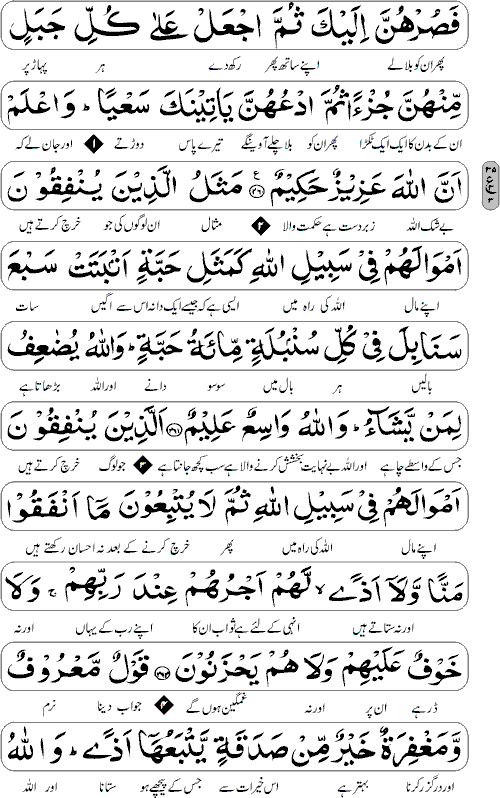 فَصُرْهُنَّ اِلَيْكَ ثُمَّ اجْعَلْ عَلٰى كُلِّ جَبَلٍ
پھر ان کو ہلا لے اپنے ساتھ پھر رکھ دے ہر پہاڑ پر
مِّنْهُنَّ جُزْءًا ثُمَّ ادْعُهُنَّ يَاْتِيْنَكَ سَعْيًا ؕ وَاعْلَمْ
ان کے بدن کا ایک ایک ٹکڑا پھر ان کو بلا چلے آوینگے تیرے پاس دوڑتے ۱ اور جان لے کہ
اَنَّ اللهَ عَزِيْزٌ حَكِيْمٌ ۲۶۰ مَثَلُ الَّذِيْنَ يُنْفِقُوْنَ
بے شک اللہ زبردست ہے حکمت والا ۲ مثال ان لوگوں کی جو خرچ کرتے ہیں
اَمْوَالَهُمْ فِيْ سَبِيْلِ اللهِ كَمَثَلِ حَبَّةٍ اَنْۢبَتَتْ سَبْعَ
اپنے مال اللہ کی راہ میں ایسی ہے کہ جیسے ایک دانہ اس سے اگیں سات
سَنَابِلَ فِيْ كُلِّ سُنْۢبُلَةٍ مِّائَةُ حَبَّةٍ ؕ وَاللهُ يُضٰعِفُ
بالیں ہر بال میں سو سو دانے اور اللہ بڑھاتا ہے
لِمَنْ يَّشَآءُ ؕ وَاللهُ وَاسِعٌ عَلِيْمٌ ۲۶۱ اَلَّذِيْنَ يُنْفِقُوْنَ
جس کے واسطے چاہے اور اللہ بے نہایت بخشش کرنے والا ہے سب کچھ جانتا ہے ۳ جو لوگ خرچ کرتے ہیں
اَمْوَالَهُمْ فِيْ سَبِيْلِ اللهِ ثُمَّ لَا يُتْبِعُوْنَ مَآ اَنْفَقُوْا
اپنے مال اللہ کی راہ میں پھر خرچ کرنے کے بعد نہ احسان رکھتے ہیں
مَنًّا وَّلَآ اَذًى ۙ لَّهُمْ اَجْرُهُمْ عِنْدَ رَبِّهِمْ ۚ وَلَا
اور نہ ستاتے ہیں انہی کے لئے ہے ثواب ان کا اپنے رب کے یہاں اور نہ
خَوْفٌ عَلَيْهِمْ وَلَا هُمْ يَحْزَنُوْنَ ۲۶۲ قَوْلٌ مَّعْرُوْفٌ
ڈر ہے ان پر اور نہ غمگین ہوں گے ۴ جواب دینا نرم
وَّمَغْفِرَةٌ خَيْرٌ مِّنْ صَدَقَةٍ يَّتْبَعُهَآ اَذًى ؕ وَاللهُ
اور درگزر کرنا بہتر ہے اس خیرات سے جس کے پیچھے ہو ستانا اور اللہ